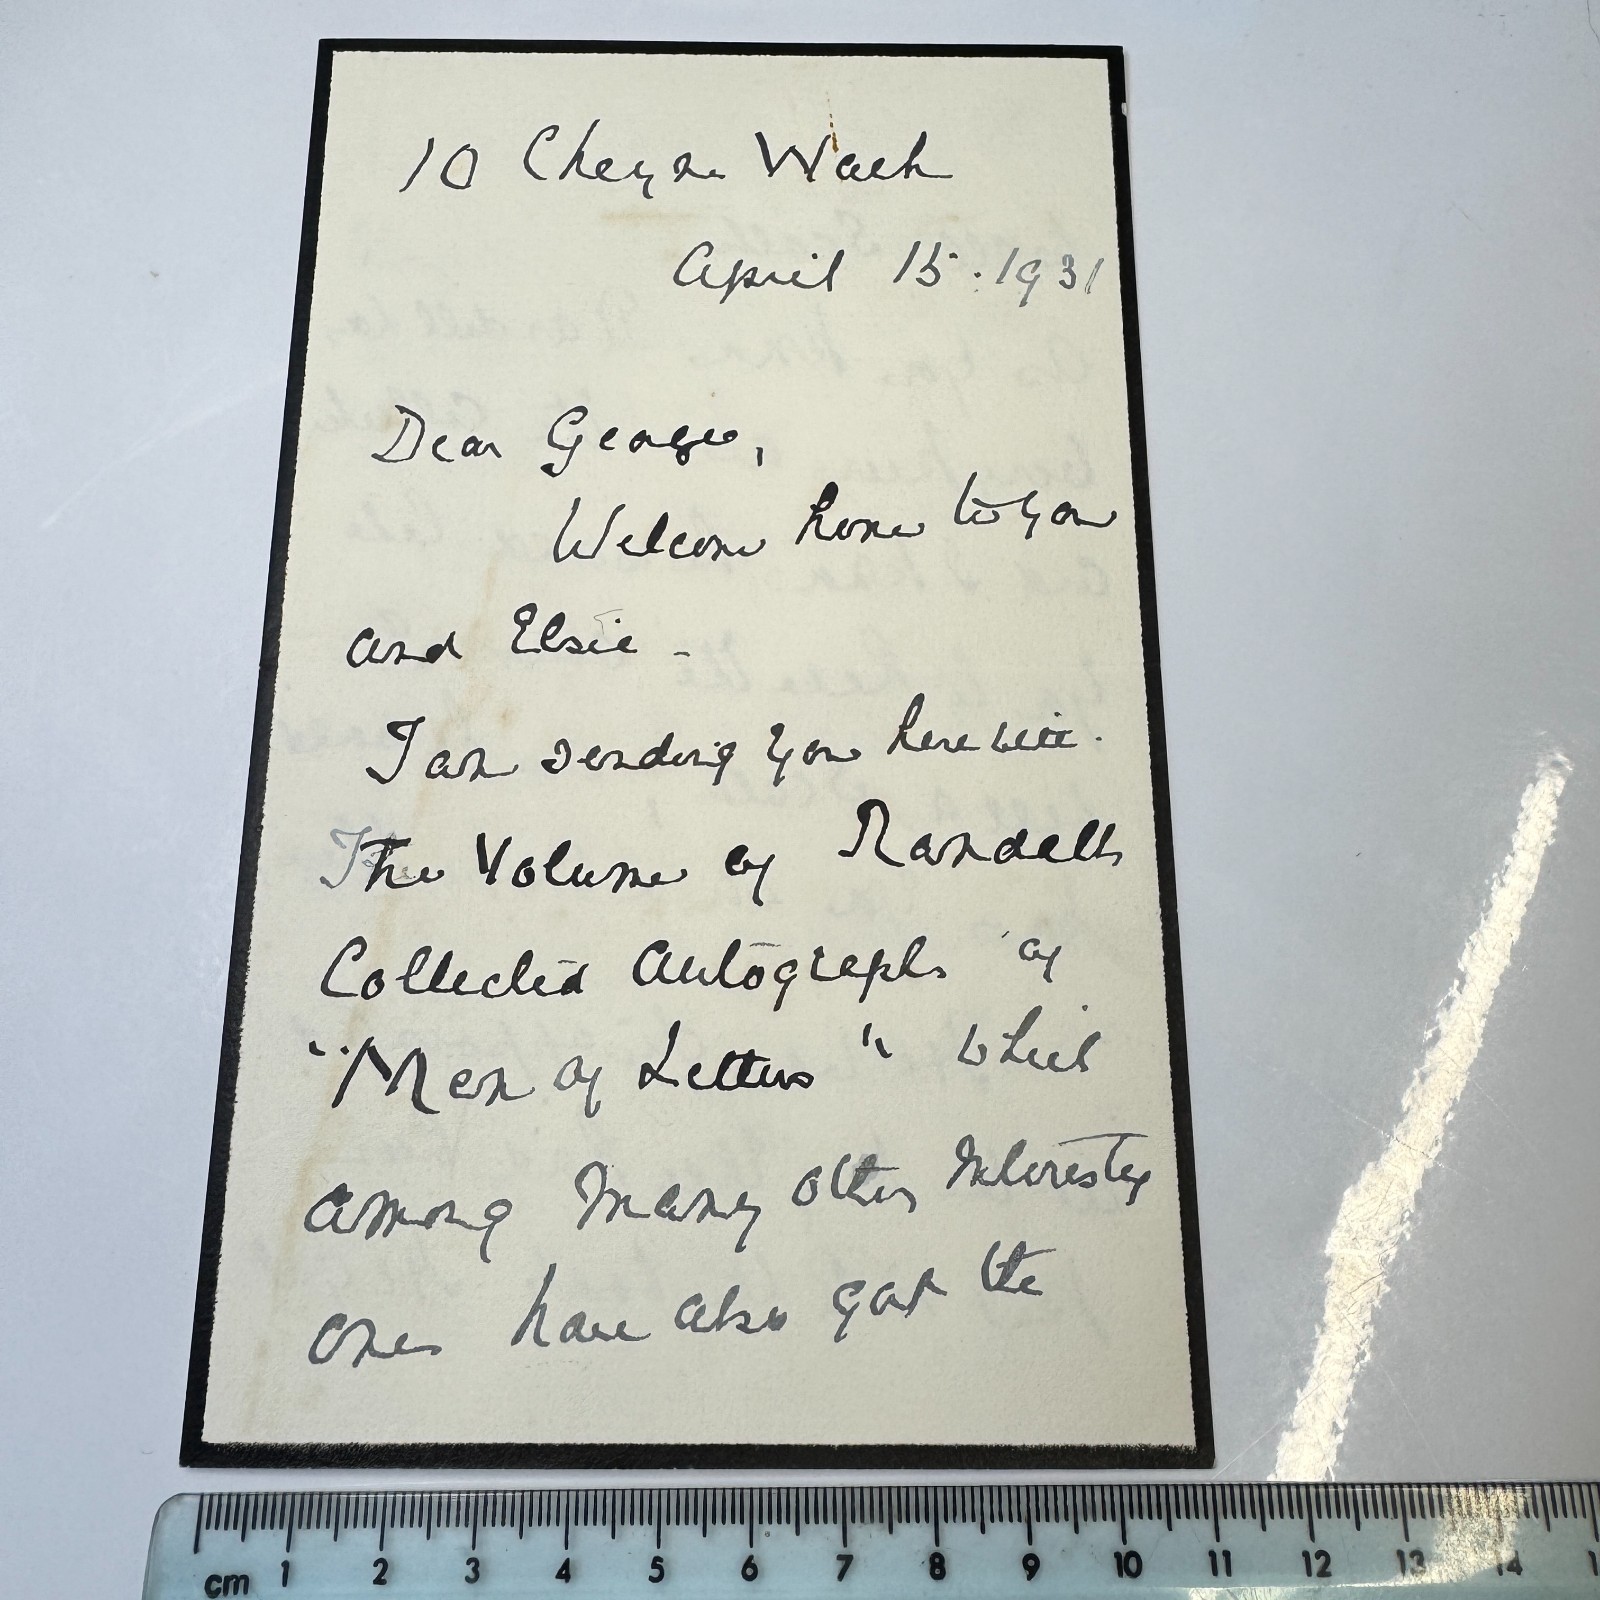 10 Cheyne Walk
April 15. 1931
Dear George,
Welcome home to you
and Elsie -
I am sending you herewith.
The Volume of Randalls
Collected Autographs of
"Men of Letters" which
among many other interesting
ones have also got the
cm 1 2 3 4 5 6 7 8 9 10 11 12 13 14 1